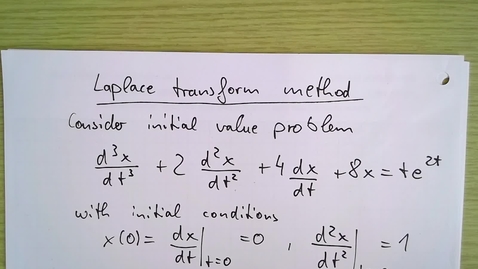 Laplace transform method
Consider initial value problem
d³x/dt³ + 2 d²x/dt² + 4 dx/dt + 8x = te^{2t}
with initial conditions
x(0) = dx/dt|_{t=0} = 0 , d²x/dt²| = 1